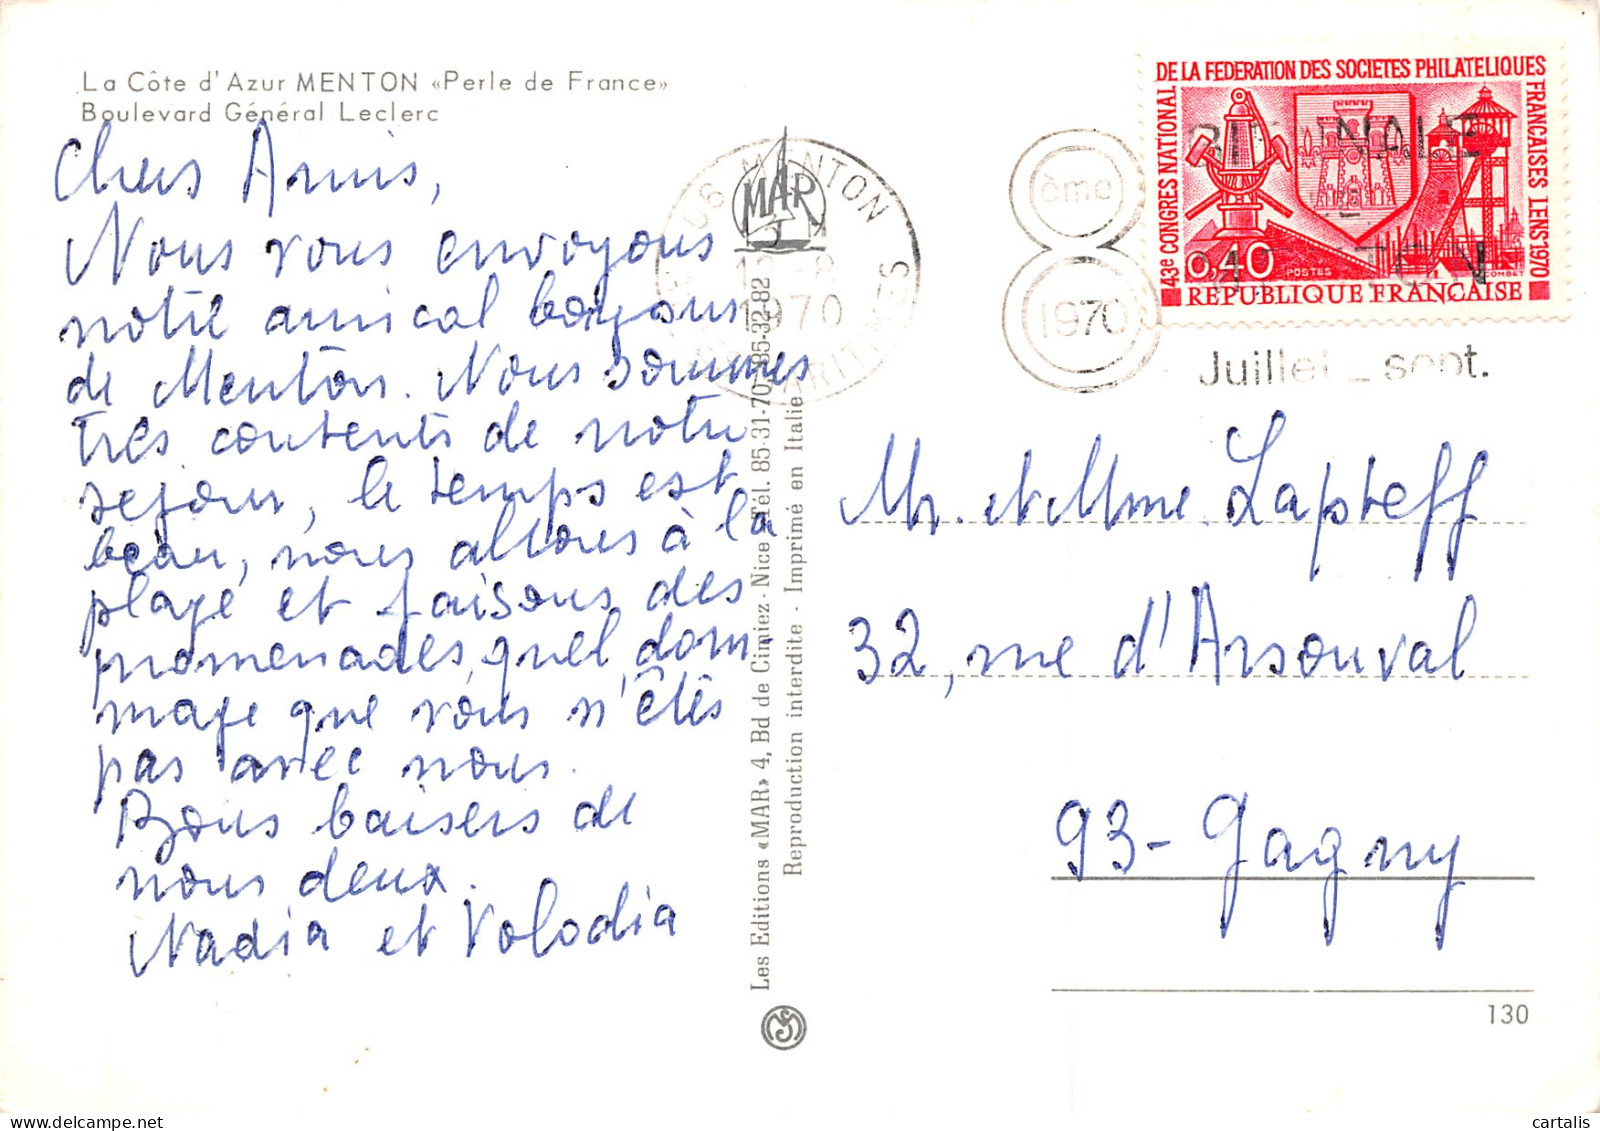 La Côte d'Azur MENTON «Perle de France»
Boulevard Général Leclerc
Chers Amis,
Nous vous envoyons
notre amical bonjour
de Menton. Nous sommes
très contents de notre
sejour, le temps est
beau, nous allons à la
plage et faisons des
promenades, quel dom-
mage que vous n'êtes
pas avec nous.
Bons baisers de
nous deux.
Nadia et Volodia
MAR
06 MENTON
1970
MARITIMES
Les Editions «MAR» 4, Bd de Cimiez - Nice Tél. 85-31-70 - 85-32-82
Reproduction interdite - Imprimé en Italie
8ème
1970
BIENNALE
MENTON
Juillet - sept.
43e CONGRES NATIONAL DE LA FEDERATION DES SOCIETES PHILATELIQUES FRANÇAISES LENS 1970
0,40
POSTES
COMBET
REPUBLIQUE FRANÇAISE
Mr. et Mme. Lapteff
32, rue d'Arsonval
93 - Gagny
130
cartalis